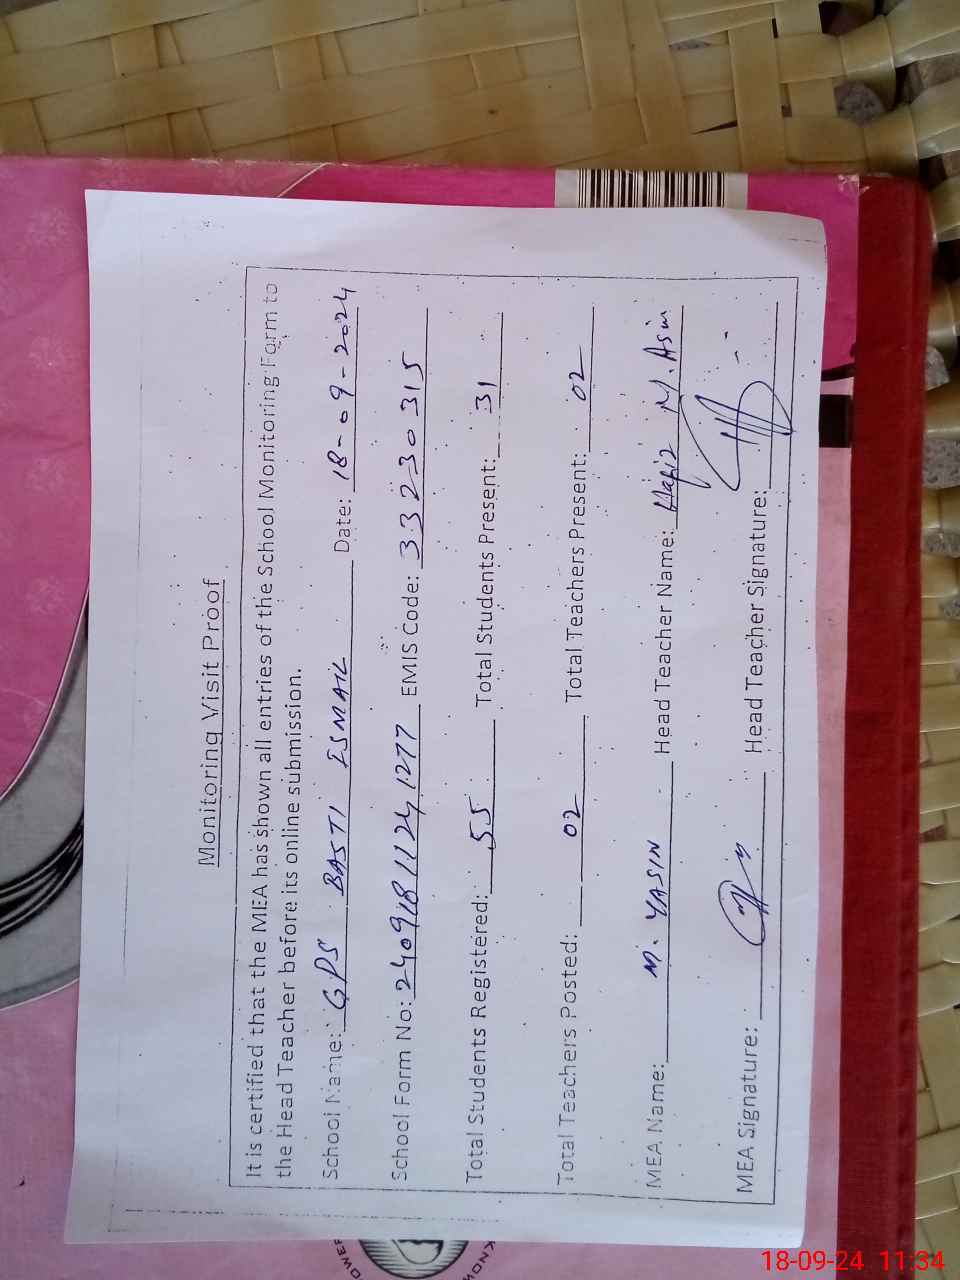 Monitoring Visit Proof
It is certified that the MEA has shown all entries of the School Monitoring Form to
the Head Teacher before its online submission.
School Name: GPS BASTI ISMAIL Date: 18-09-2024
School Form No: 24091811241277 EMIS Code: 33230315
Total Students Registered: 55 Total Students Present: 31
Total Teachers Posted: 02 Total Teachers Present: 02
MEA Name: M. YASIN Head Teacher Name: Hafiz M. Asim
MEA Signature: Head Teacher Signature:
KNOW
18-09-24 11:34